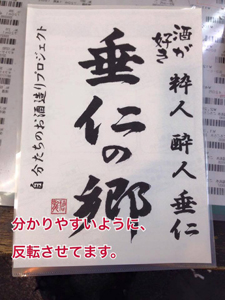 酒が
好き
粋人 酔人 垂仁
垂仁の郷
自分たちのお酒造りプロジェクト
分かりやすいように、
反転させてます。